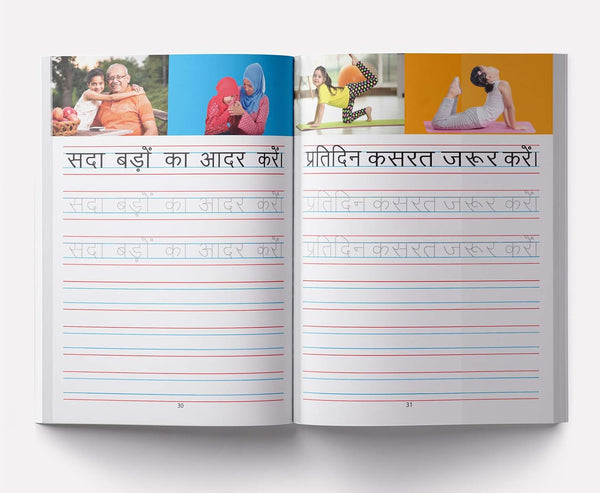 सदा बड़ों का आदर करें।
सदा बड़ों का आदर करें।
सदा बड़ों का आदर करें।
30
प्रतिदिन कसरत जरूर करें।
प्रतिदिन कसरत जरूर करें।
प्रतिदिन कसरत जरूर करें।
31